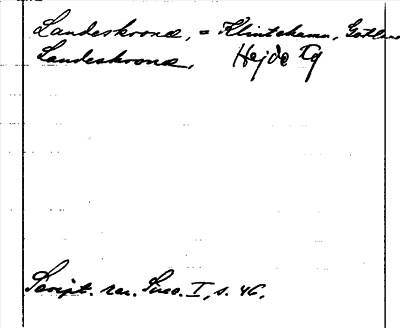 Landeskrona, = Klintehamn, Gotland
Landeskrona, Hejde Tg
Script. rer. Suec. I, s. 46.